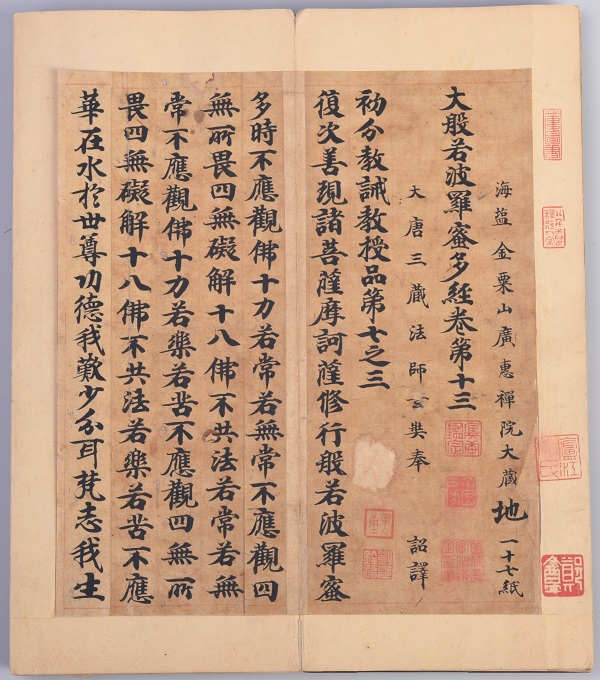 海盐金粟山廣惠禪院大藏 地 一十七紙
大般若波羅蜜多經卷第十三
大唐三藏法師玄奘奉 詔譯
初分教誡教授品第七之三
復次善現諸菩薩摩訶薩修行般若波羅蜜
多時不應觀佛十力若常若無常不應觀四
無所畏四無礙解十八佛不共法若常若無
常不應觀佛十力若樂若苦不應觀四無所
畏四無礙解十八佛不共法若樂若苦不應
華在水於世尊功德我歎少分耳梵志我生